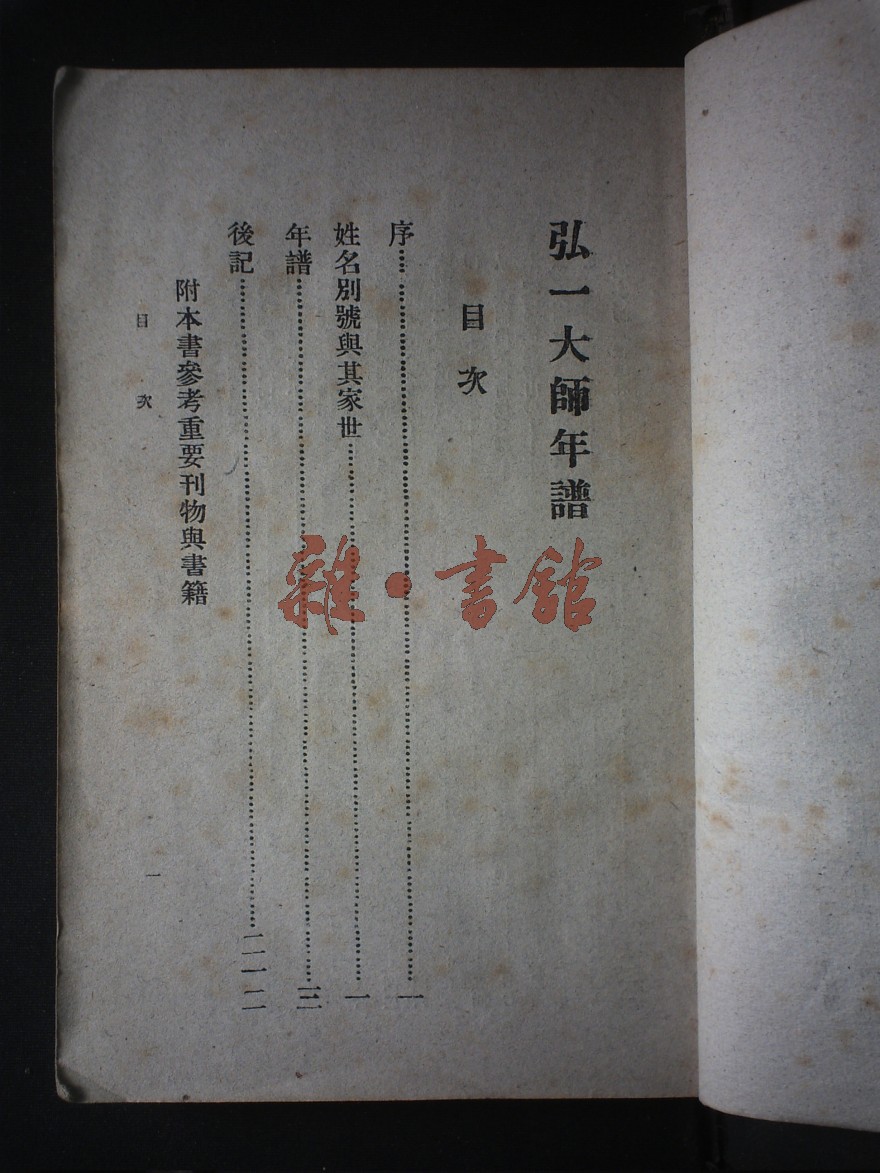 弘一大師年譜
目次
序……一
姓名別號與其家世……一
年譜……三
後記……二一二
附本書參考重要刊物與書籍
目次
一
雜·書館